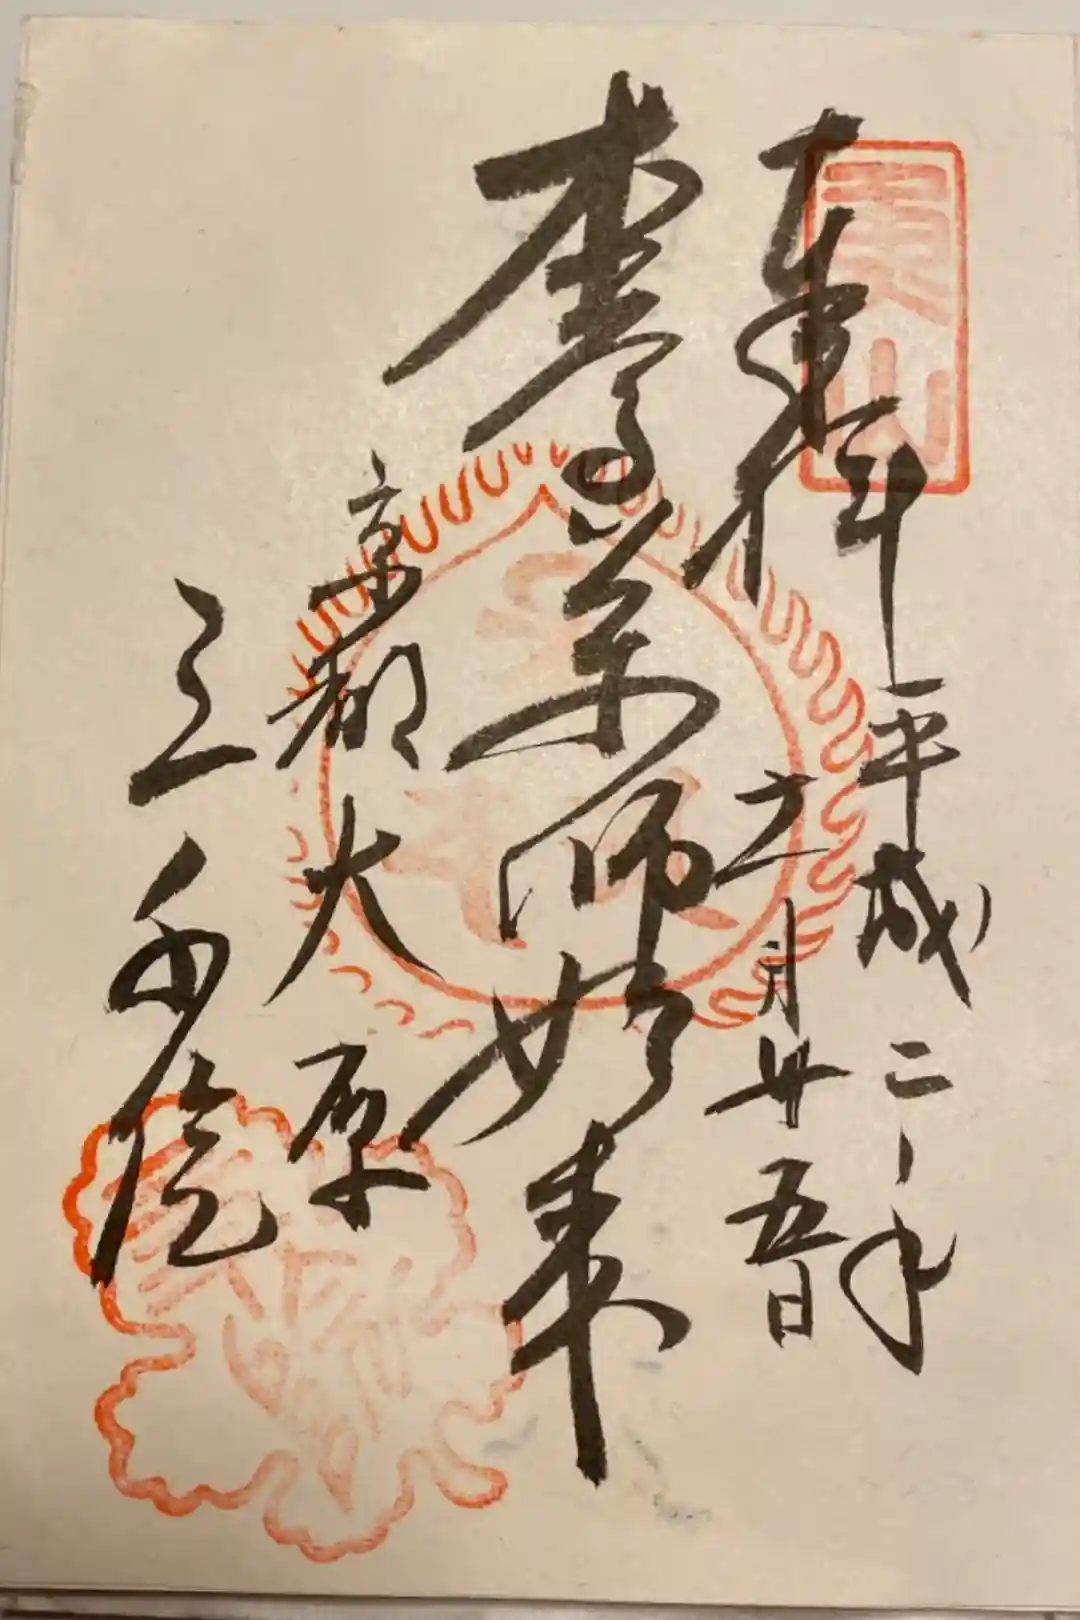 奉拝 平成二年
月廿五日
本尊薬師如来
京都大原
三千院